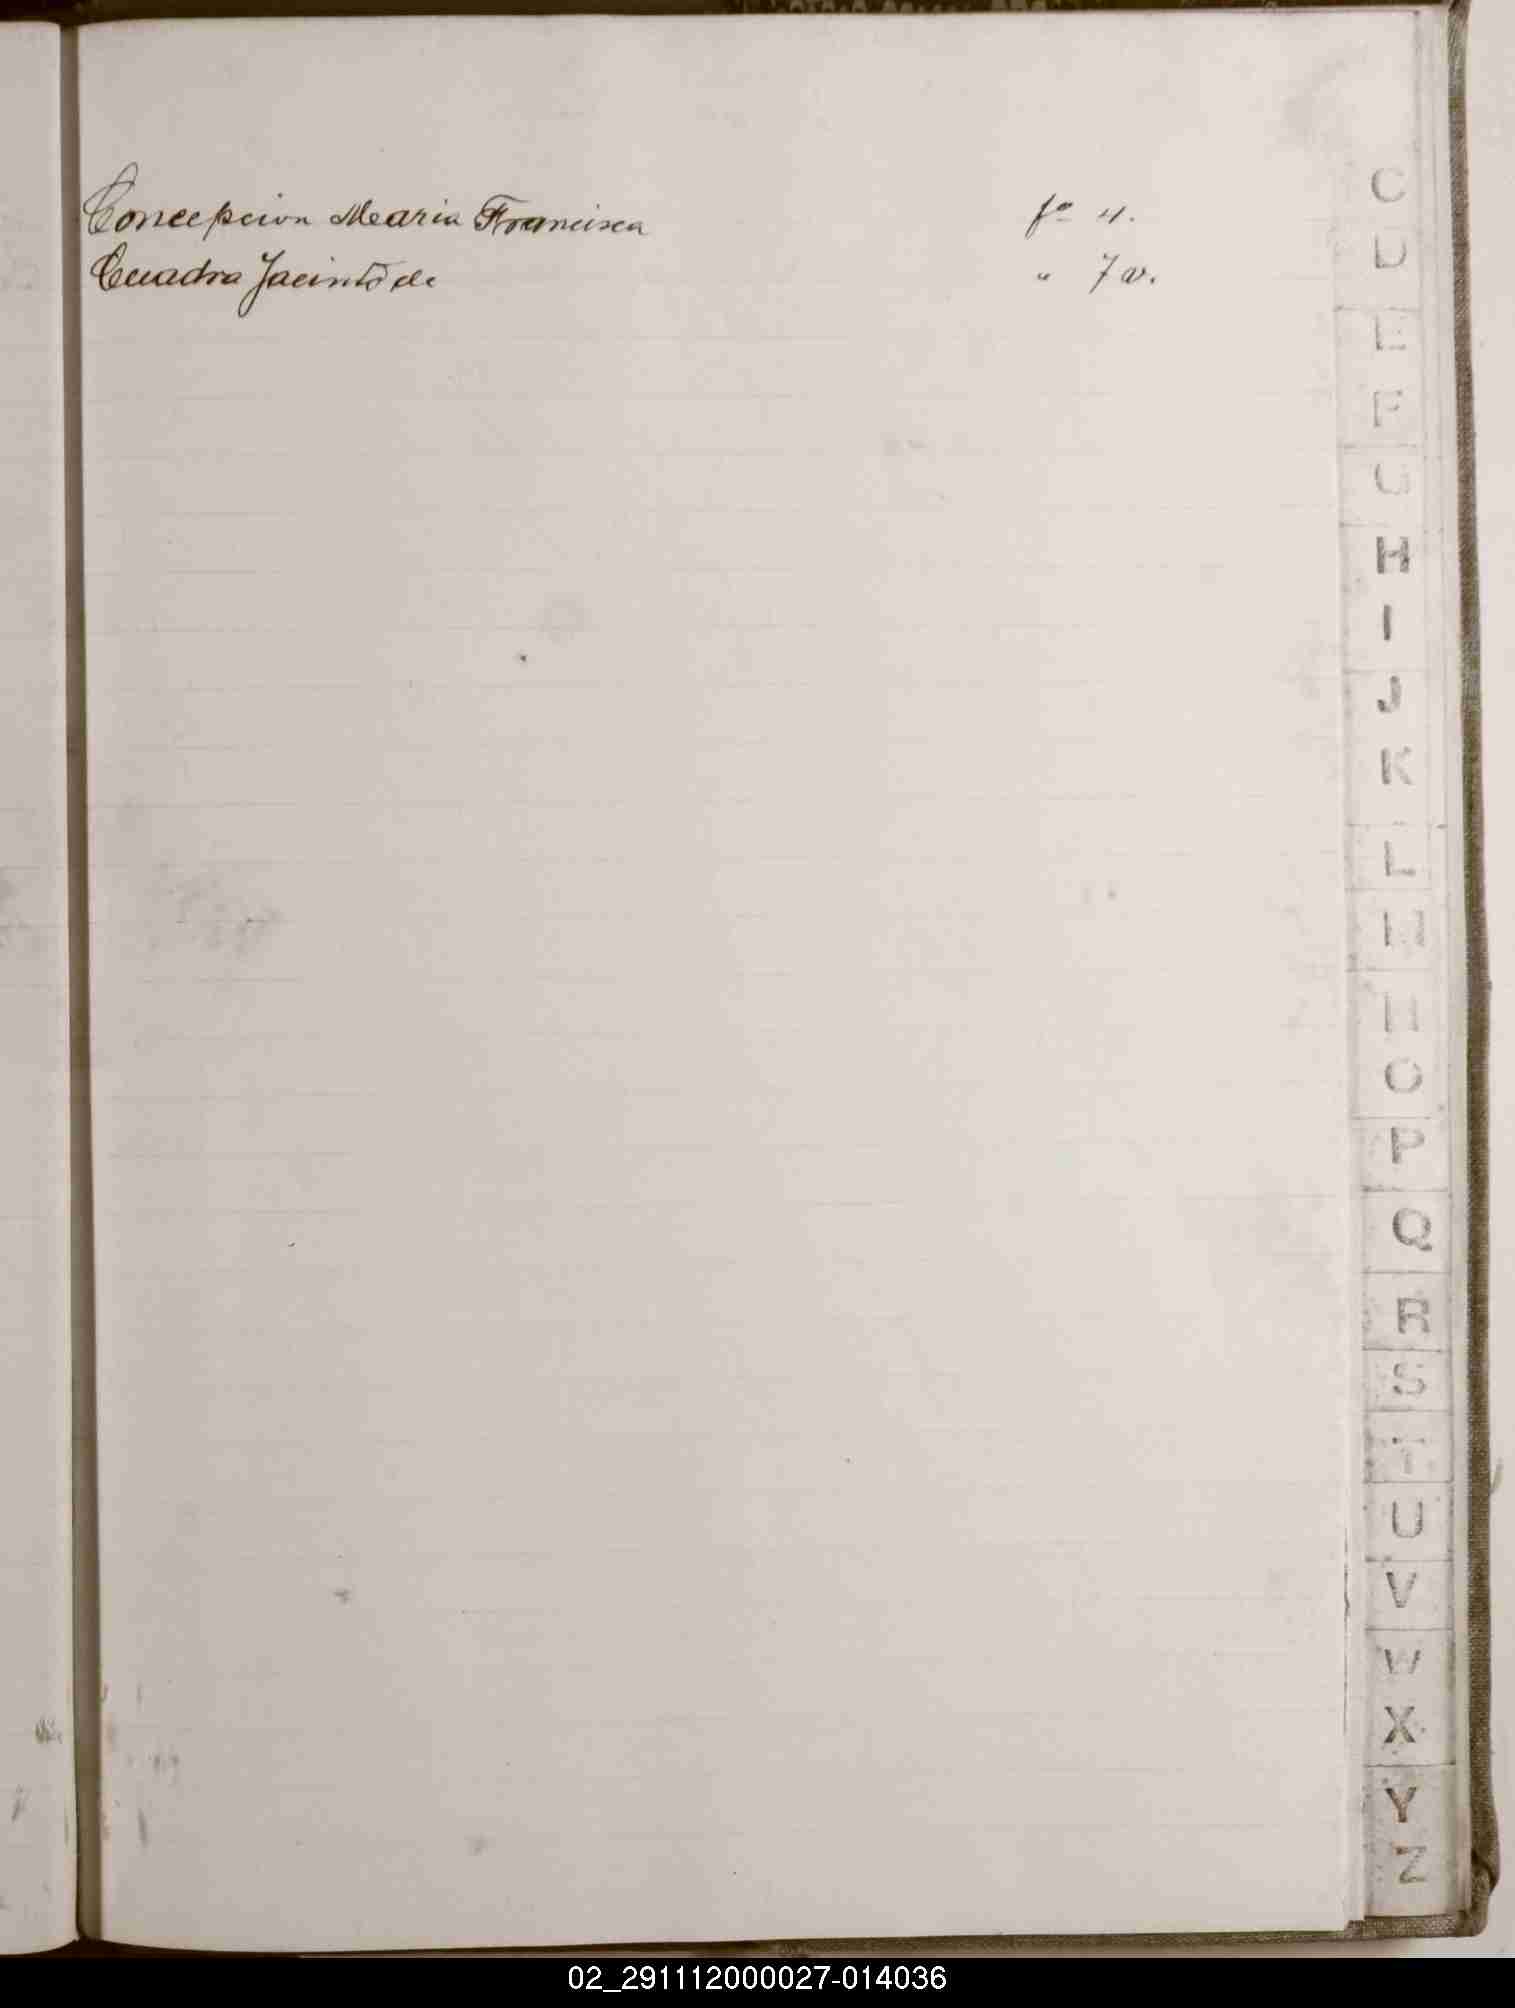 Concepcion Maria Francisca fº 4.
Cuadra Jacinto de " 7 v.
C
D
E
F
G
H
I
J
K
L
M
N
O
P
Q
R
S
T
U
V
W
X
Y
Z
02_291112000027-014036